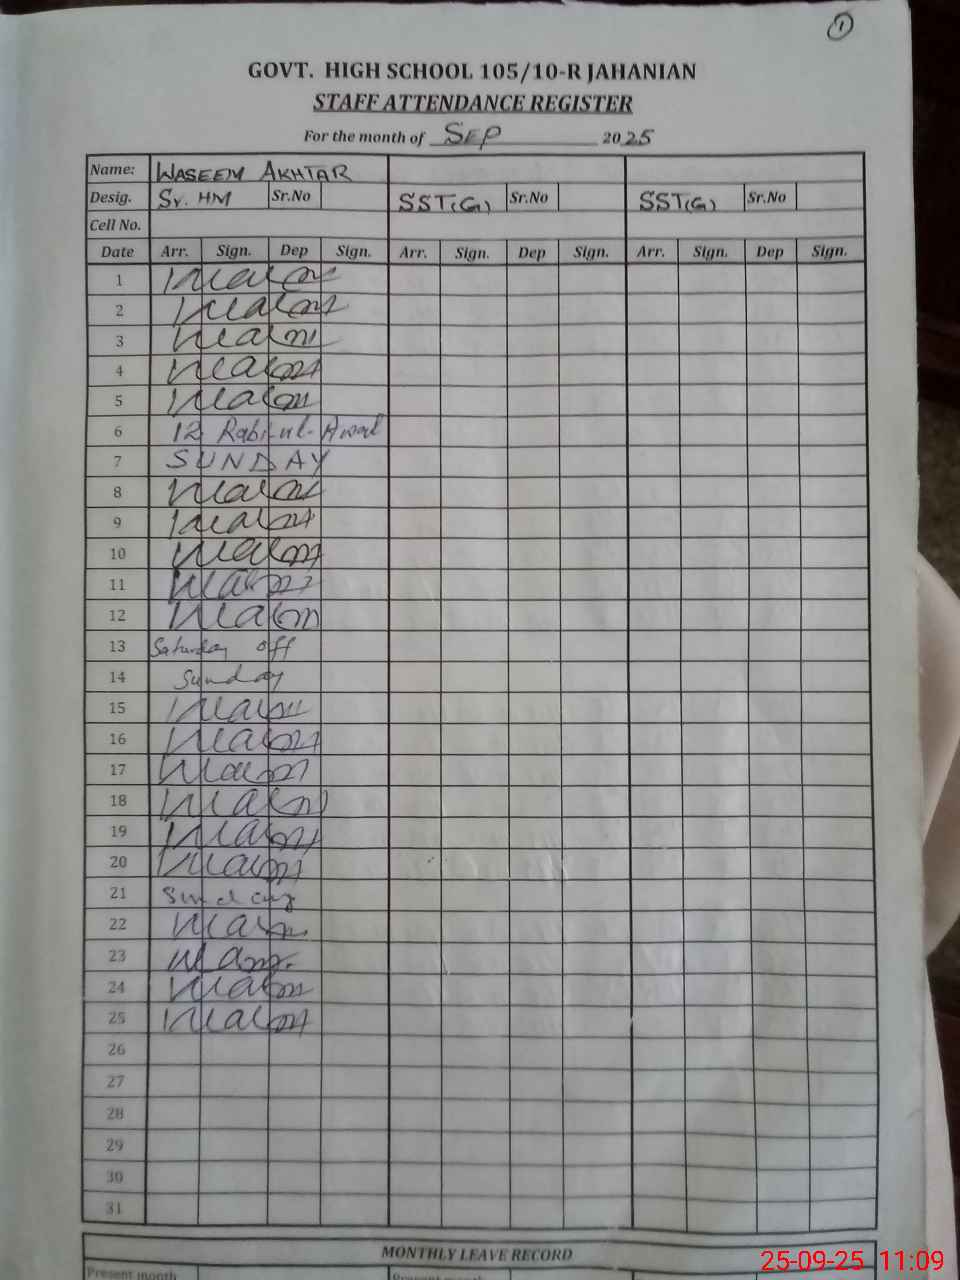 1
GOVT. HIGH SCHOOL 105/10-R JAHANIAN
STAFF ATTENDANCE REGISTER
For the month of SEP 2025
Name: WASEEM AKHTAR
Desig. Sr. HM Sr.No SST(G) Sr.No SST(G) Sr.No
Cell No.
Date Arr. Sign. Dep Sign. Arr. Sign. Dep Sign. Arr. Sign. Dep Sign.
1
2
3
4
5
6 12 Rabi-ul-Awal
7 SUNDAY
8
9
10
11
12
13 Saturday off
14 Sunday
15
16
17
18
19
20
21 Sunday
22
23
24
25
26
27
28
29
30
31
MONTHLY LEAVE RECORD
Present month Present month
25-09-25 11:09